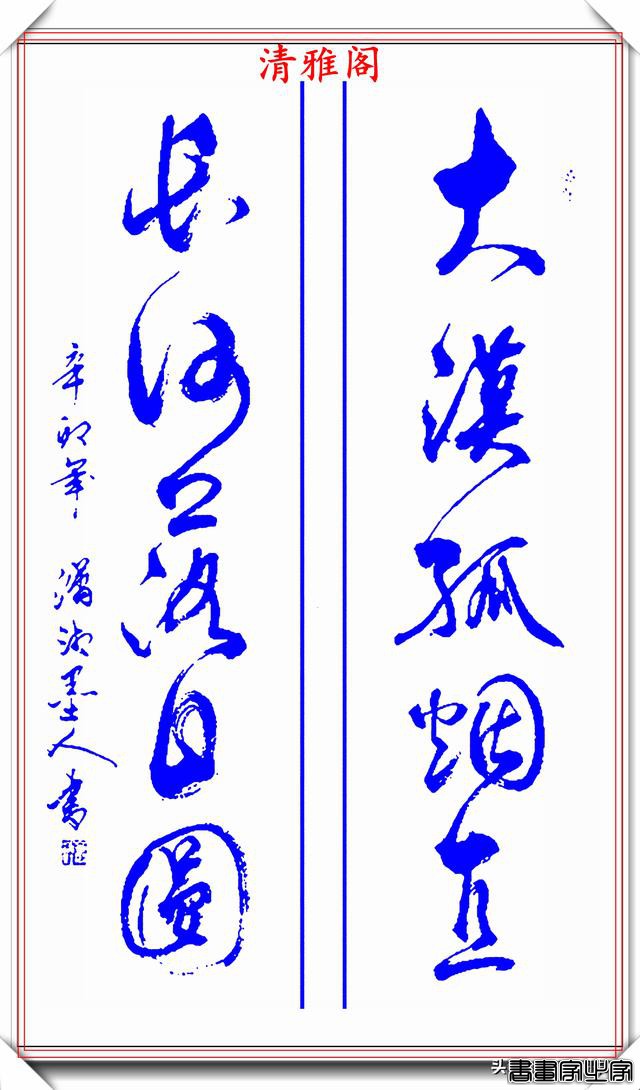 清雅阁
大漠孤烟直
长河落日圆
辛卯年 潇湘墨人书
头条
書畫家必家